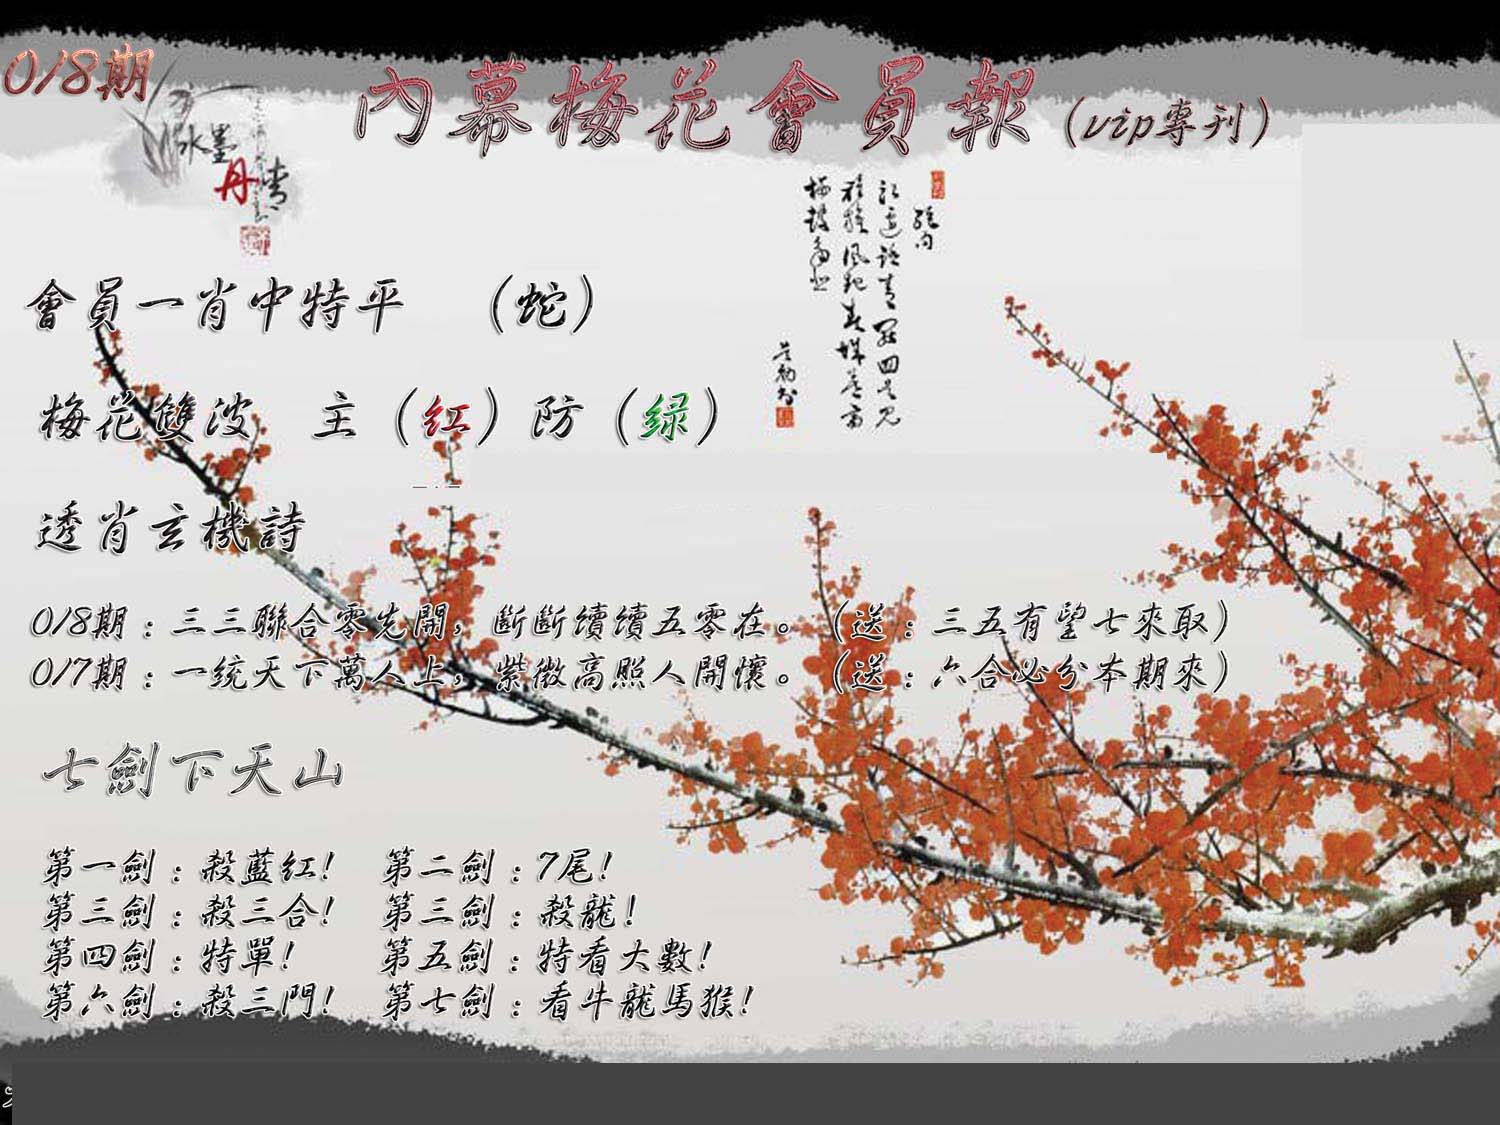 018期
內幕梅花會員報（vip專刊）
水墨
丹青
會員一肖中特平 （蛇）
梅花雙波 主（红）防（绿）
透肖玄機詩
018期：三三聯合零先開，斷斷續續五零在。（送：三五有望七來取）
017期：一统天下萬人上，紫微高照人開懷。（送：六合必分本期來）
七劍下天山
第一劍：殺藍紅！ 第二劍：7尾！
第三劍：殺三合！ 第三劍：殺龍！
第四劍：特單！ 第五劍：特看大數！
第六劍：殺三門！ 第七劍：看牛龍馬猴！